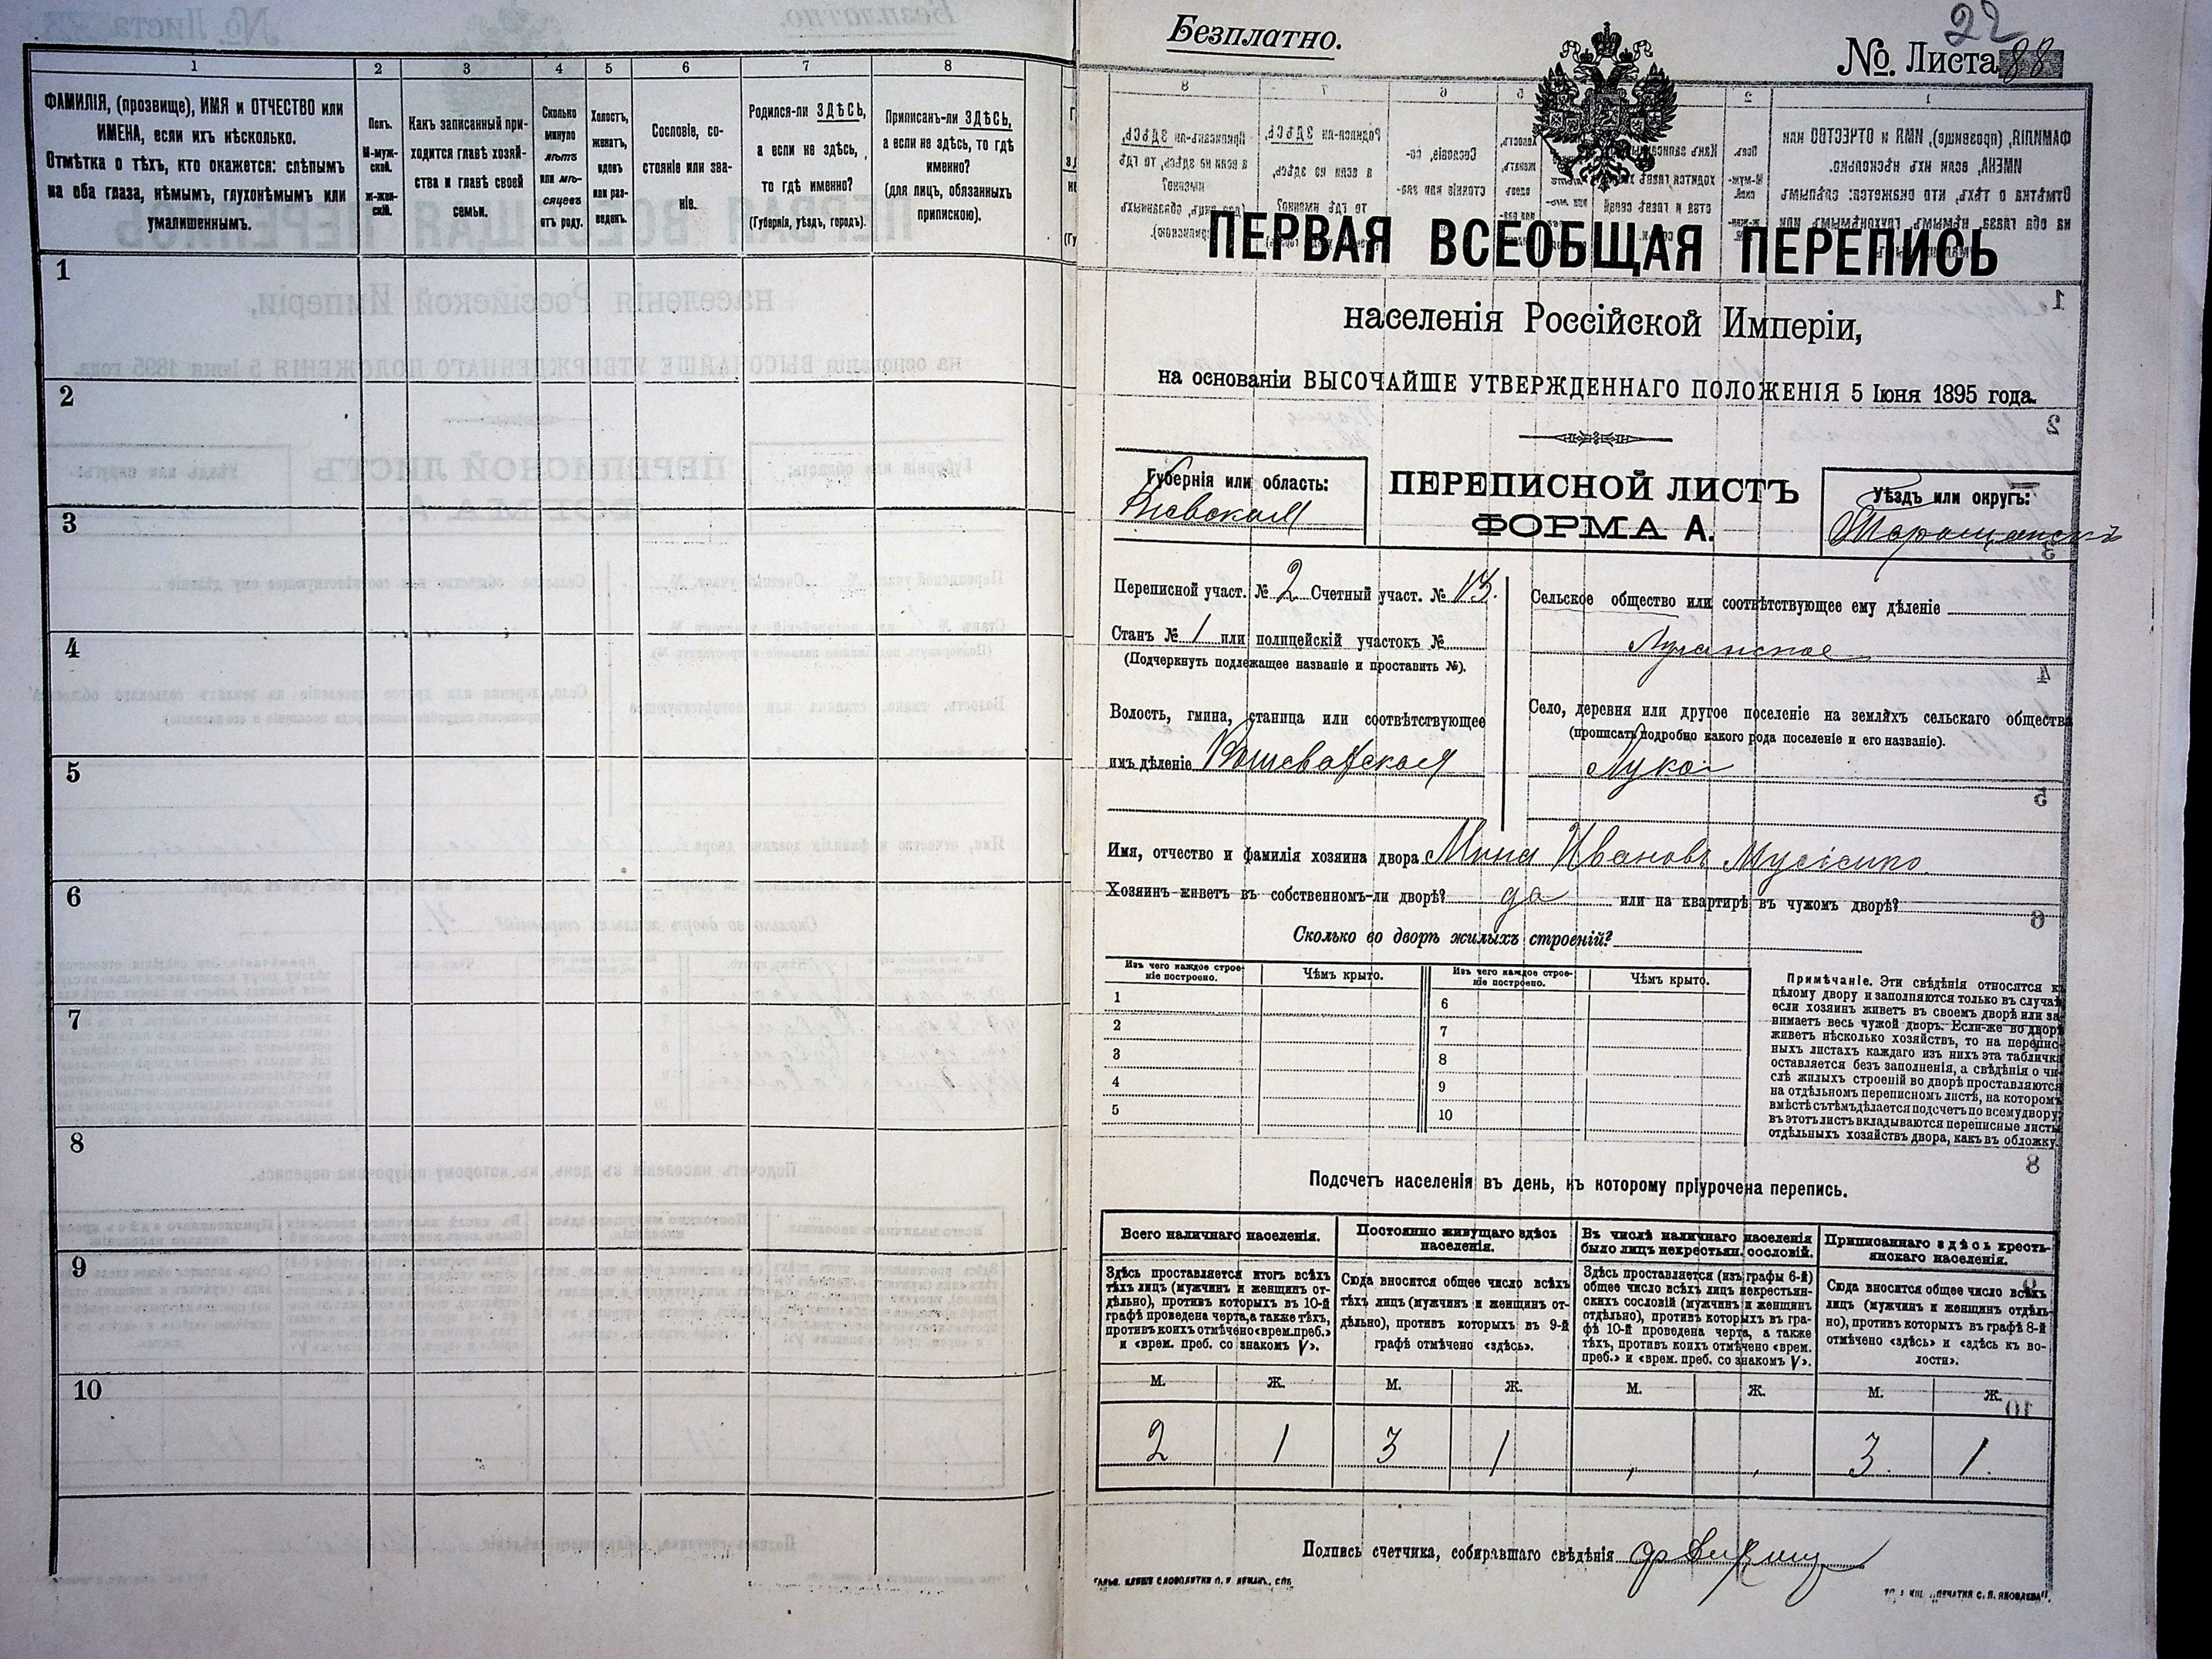 1 2 3 4 5 6 7 8
ФАМИЛІЯ, (прозвище), ИМЯ и ОТЧЕСТВО или
ИМЕНА, если ихъ нѣсколько.
Отмѣтка о тѣхъ, кто окажется: слѣпымъ
на оба глаза, нѣмымъ, глухонѣмымъ или
умалишеннымъ.
Полъ.
М-муж-
ской.
ж-жен-
скій.
Какъ записанный при-
ходится главѣ хозяй-
ства и главѣ своей
семьи.
Сколько
минуло
лѣтъ
или мѣ-
сяцевъ
отъ роду.
Холостъ,
женатъ,
вдовъ
или раз-
веденъ.
Сословіе, со-
стояніе или зва-
ніе.
Родился-ли ЗДѢСЬ,
а если не здѣсь,
то гдѣ именно?
(Губернія, уѣздъ, городъ).
Приписанъ-ли ЗДѢСЬ,
а если не здѣсь, то гдѣ
именно?
(для лицъ, обязанныхъ
припискою).
1
2
3
4
5
6
7
8
9
10
Безплатно.
22
№. Листа 88
ПЕРВАЯ ВСЕОБЩАЯ ПЕРЕПИСЬ
населенія Россійской Имперіи,
на основаніи ВЫСОЧАЙШЕ УТВЕРЖДЕННАГО ПОЛОЖЕНІЯ 5 Іюня 1895 года.
Губернія или область:
Кіевская
ПЕРЕПИСНОЙ ЛИСТЪ
ФОРМА А.
Уѣздъ или округъ:
Таращанскъ
Переписной участ. № 2 Счетный участ. № 13.
Станъ № 1 или полицейскій участокъ №
(Подчеркнуть подлежащее названіе и проставить №).
Волость, гмина, станица или соотвѣтствующее
имъ дѣленіе
Сельское общество или соотвѣтствующее ему дѣленіе
Село, деревня или другое поселеніе на земляхъ сельскаго общества
(прописать подробно какого рода поселеніе и его названіе).
Имя, отчество и фамилія хозяина двора Мина Ивановъ
Хозяинъ живетъ въ собственномъ-ли дворѣ? да или на квартирѣ въ чужомъ дворѣ?
Сколько во дворѣ жилыхъ строеній?
Изъ чего каждое строе-
ніе построено.
Чѣмъ крыто.
Изъ чего каждое строе-
ніе построено.
Чѣмъ крыто.
1 6
2 7
3 8
4 9
5 10
Примѣчаніе. Эти свѣдѣнія относятся къ
цѣлому двору и заполняются только въ случаѣ
если хозяинъ живетъ въ своемъ дворѣ или за-
нимаетъ весь чужой дворъ. Если-же во дворѣ
живетъ нѣсколько хозяйствъ, то на перепис-
ныхъ листахъ каждаго изъ нихъ эта табличка
оставляется безъ заполненія, а свѣдѣнія о чи-
слѣ жилыхъ строеній во дворѣ проставляются
на отдѣльномъ переписномъ листѣ, на которомъ
вмѣстѣ съ тѣмъ дѣлается подсчетъ по всему двору;
въ этотъ листъ вкладываются переписные листы
отдѣльныхъ хозяйствъ двора, какъ въ обложку.
Подсчетъ населенія въ день, къ которому пріурочена перепись.
Всего наличнаго населенія.
Здѣсь проставляется итогъ всѣхъ
тѣхъ лицъ (мужчинъ и женщинъ от-
дѣльно), противъ которыхъ въ 10-й
графѣ проведена черта, а также тѣхъ,
противъ коихъ отмѣчено «врем. преб.»
и «врем. преб. со знакомъ V».
Постоянно живущаго здѣсь
населенія.
Сюда вносится общее число всѣхъ
тѣхъ лицъ (мужчинъ и женщинъ от-
дѣльно), противъ которыхъ въ 9-й
графѣ отмѣчено «здѣсь».
Въ числѣ наличнаго населенія
было лицъ некрестьян. сословій.
Здѣсь проставляется (изъ графы 6-й)
общее число всѣхъ лицъ некрестьян-
скихъ сословій (мужчинъ и женщинъ
отдѣльно), противъ которыхъ въ гра-
фѣ 10-й проведена черта, а также
тѣхъ, противъ коихъ отмѣчено «врем.
преб.» и «врем. преб. со знакомъ V».
Приписаннаго здѣсь кресть-
янскаго населенія.
Сюда вносится общее число всѣхъ
лицъ (мужчинъ и женщинъ отдѣль-
но), противъ которыхъ въ графѣ 8-й
отмѣчено «здѣсь» и «здѣсь въ во-
лости».
М. Ж. М. Ж. М. Ж. М. Ж.
2 1 3 1 3. 1.
Подпись счетчика, собиравшаго свѣдѣнія